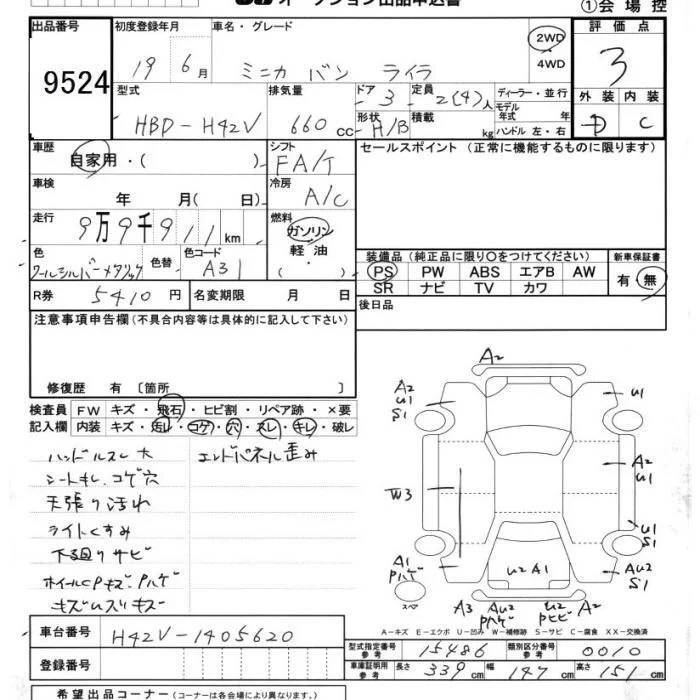 オークション出品申込書
①会場控
出品番号 9524
初度登録年月 19 6月
車名・グレード ミニカ バン ライラ
2WD
・4WD
評価点 3
外装 内装
D C
型式 HBD-H42V
排気量 660 cc
ドア 3
定員 2(4)人
形状 H/B
積載 kg
ディーラー・並行
モデル年式 年
ハンドル 左・右
車歴 自家用・( )
シフト FA/T
セールスポイント (正常に機能するものに限ります)
車検 年 月( 日)
冷房 A/C
走行 9万9千911km
燃料 ガソリン
軽油
・( )
色 クールシルバーメタリック
色替
色コード A31
装備品(純正品に限り○をつけてください)
新車保証書
PS PW ABS エアB AW
SR ナビ TV カワ
有・無
R券 5410円
名変期限 月 日
後日品
注意事項申告欄(不具合内容等は具体的に記入して下さい)
修復歴 有〔箇所 〕
検査員記入欄
FW キズ・飛石・ヒビ割・リペア跡・×要
内装 キズ・汚レ・コゲ・穴・スレ・キレ・破レ
ハンドルスレ大 エンドパネル歪み
シートキレ、コゲ穴
天張り汚れ
ライトくすみ
下廻りサビ
ホイールCPキズ、Pハゲ
キズUズリキズ
A2
A2
U1
S1
U1
A2
U1
W3
U1
S1
A1
Pハゲ
AU2
S1
U2A1
スペア
A3
AU2
Pハゲ
U2
Pヒビ
A2
A-キズ E-エクボ U-凹み W-補修跡 S-サビ C-腐食 XX-交換済
車台番号 H42V-1405620
型式指定番号 参考 15486
類別区分番号 参考 0010
登録番号
車庫証明用 参考 長さ 339cm 幅 147cm 高さ 151cm
希望出品コーナー(コーナーは各会場により異なります。)